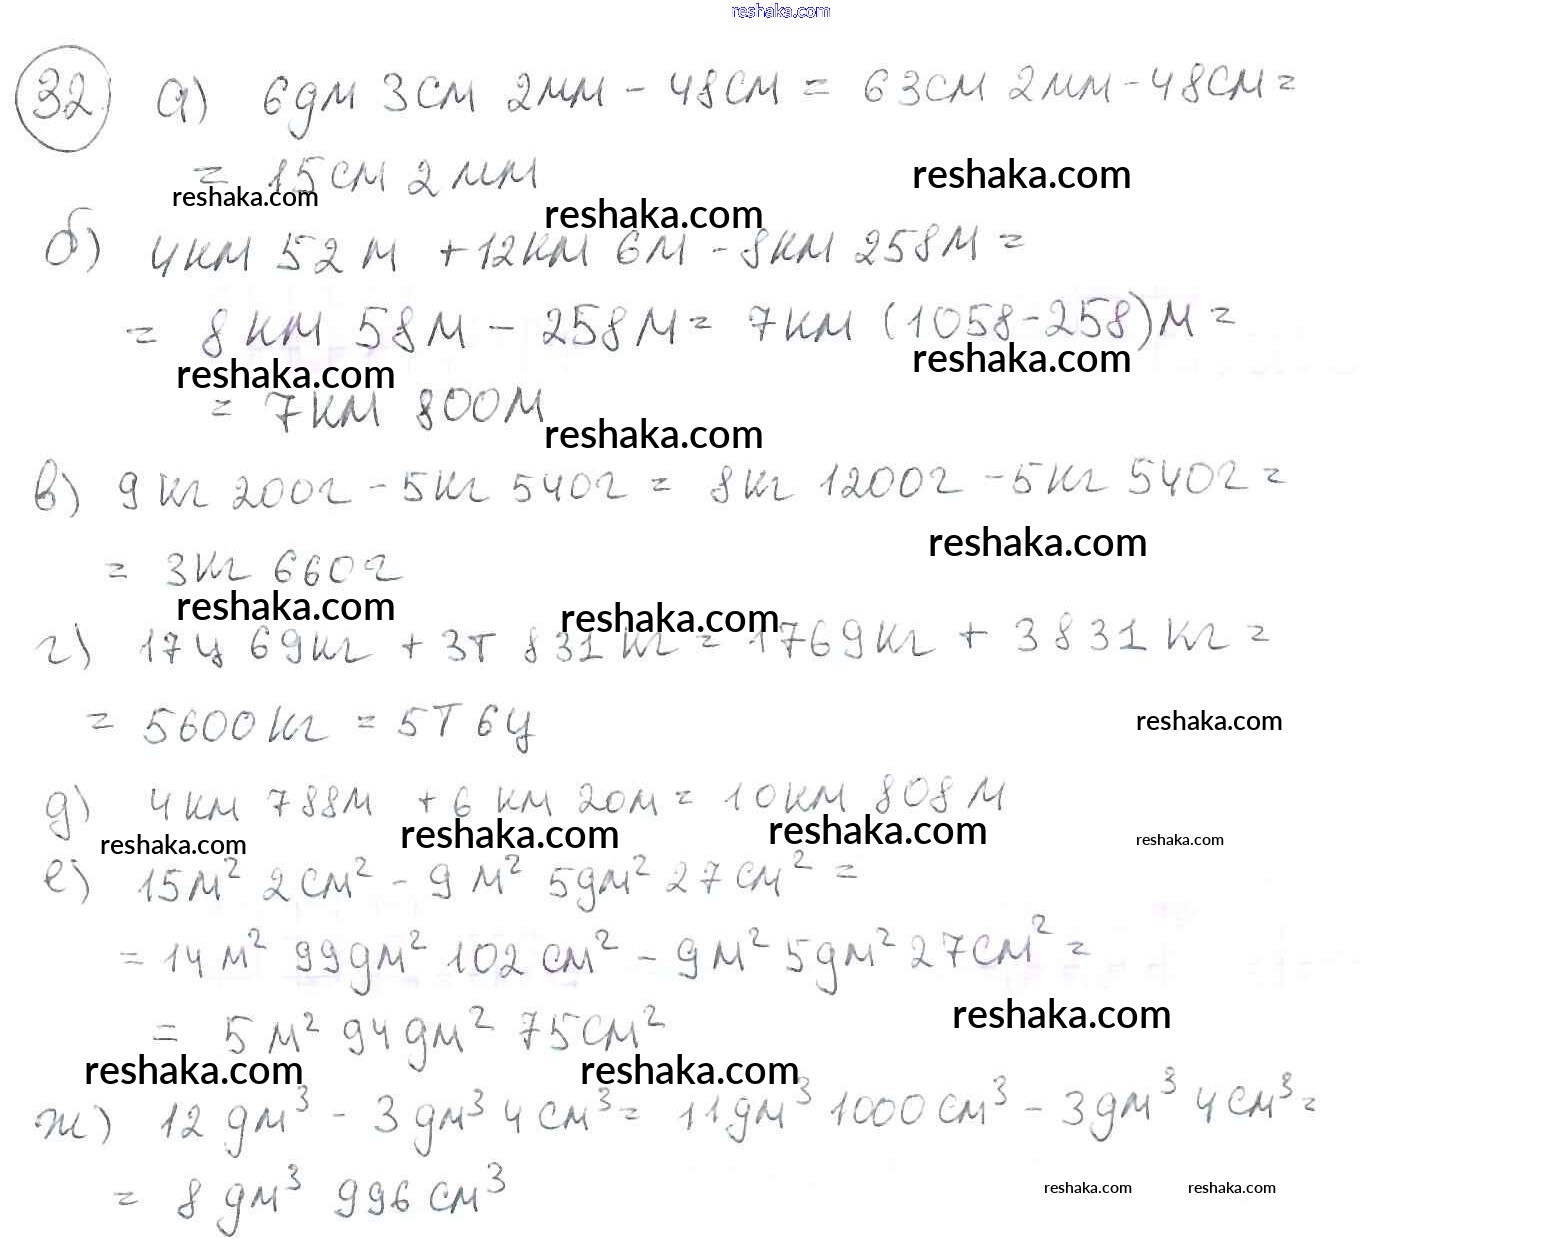 reshaka.com
32 а) 6дм 3см 2мм - 48см = 63см 2мм - 48см =
= 15см 2мм
reshaka.com
reshaka.com
reshaka.com
б) 4км 52м + 12км 6м - 8км 258м =
= 8км 58м - 258м = 7км (1058-258)м =
reshaka.com
reshaka.com
= 7км 800м
reshaka.com
в) 9кг 200г - 5кг 540г = 8кг 1200г - 5кг 540г =
reshaka.com
= 3кг 660г
reshaka.com
reshaka.com
г) 17ц 69кг + 3т 831кг = 1769кг + 3831кг =
= 5600кг = 5т 6ц
reshaka.com
д) 4км 788м + 6км 20м = 10км 808м
reshaka.com
reshaka.com
reshaka.com
reshaka.com
е) 15м² 2см² - 9м² 5дм² 27см² =
= 14м² 99дм² 102см² - 9м² 5дм² 27см² =
reshaka.com
= 5м² 94дм² 75см²
reshaka.com
reshaka.com
ж) 12дм³ - 3дм³ 4см³ = 11дм³ 1000см³ - 3дм³ 4см³ =
= 8дм³ 996см³
reshaka.com
reshaka.com